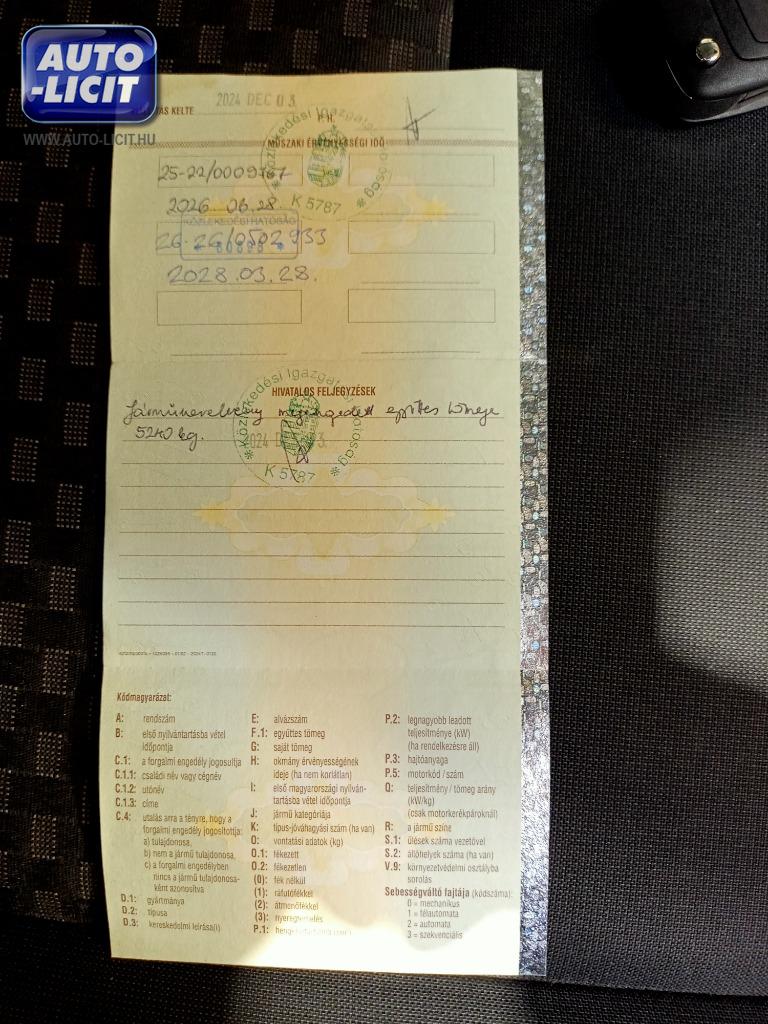 AUTO
-LICIT
WWW.AUTO-LICIT.HU
2024 DEC 03.
KELTE
P. H.
MŰSZAKI ÉRVÉNYESSÉGI IDŐ
Közlekedési Igazgatósá
K 5787
2026.06.28.
KÖZLEKEDÉSI HATÓSÁG
26-26/0502933
2028.03.28.
HIVATALOS FELJEGYZÉSEK
Közlekedési Igazgat
Járműszerelvény megengedett együttes tömege
5240 kg.
K 5787
Kódmagyarázat:
A: rendszám
B: első nyilvántartásba vétel
időpontja
C.1: a forgalmi engedély jogosítottja
C.1.1: családi név vagy cégnév
C.1.2: utónév
C.1.3: címe
C.4: utalás arra a tényre, hogy a
forgalmi engedély jogosítottja:
a) tulajdonosa,
b) nem a jármű tulajdonosa,
c) a forgalmi engedélyben
nincs a jármű tulajdonosa-
ként azonosítva
D.1: gyártmánya
D.2: típusa
D.3: kereskedelmi leírása(i)
E: alvázszám
F.1: együttes tömeg
G: saját tömeg
H: okmány érvényességének
ideje (ha nem korlátlan)
I: első magyarországi nyilván-
tartásba vétel időpontja
J: jármű kategóriája
K: típus-jóváhagyási szám (ha van)
O: vontatási adatok (kg)
O.1: fékezett
O.2: fékezetlen
(0): fék nélkül
(1): ráfutófékkel
(2): átmenőfékkel
(3): nyeregterhelés
P.1:
P.2: legnagyobb leadott
teljesítménye (kW)
(ha rendelkezésre áll)
P.3: hajtóanyaga
P.5: motorkód / szám
Q: teljesítmény / tömeg arány
(kW/kg)
(csak motorkerékpároknál)
R: a jármű színe
S.1: ülések száma vezetővel
S.2: állóhelyek száma (ha van)
V.9: környezetvédelmi osztályba
sorolás
Sebességváltó fajtája (kódszáma):
0 = mechanikus
1 = félautomata
2 = automata
3 = szekvenciális